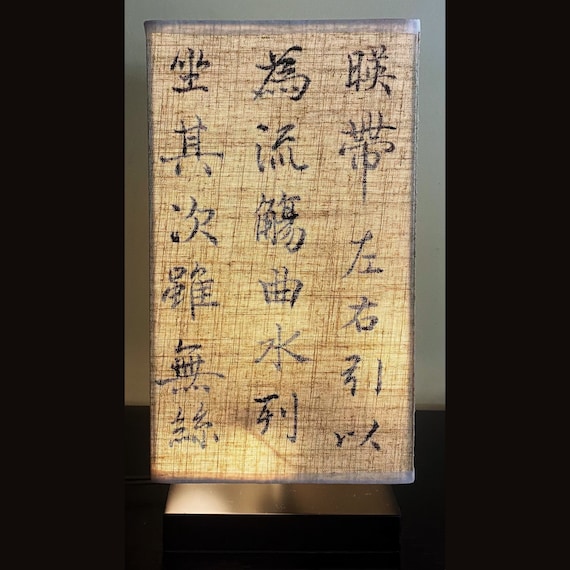 暎帶左右引以
為流觴曲水列
坐其次雖無絲